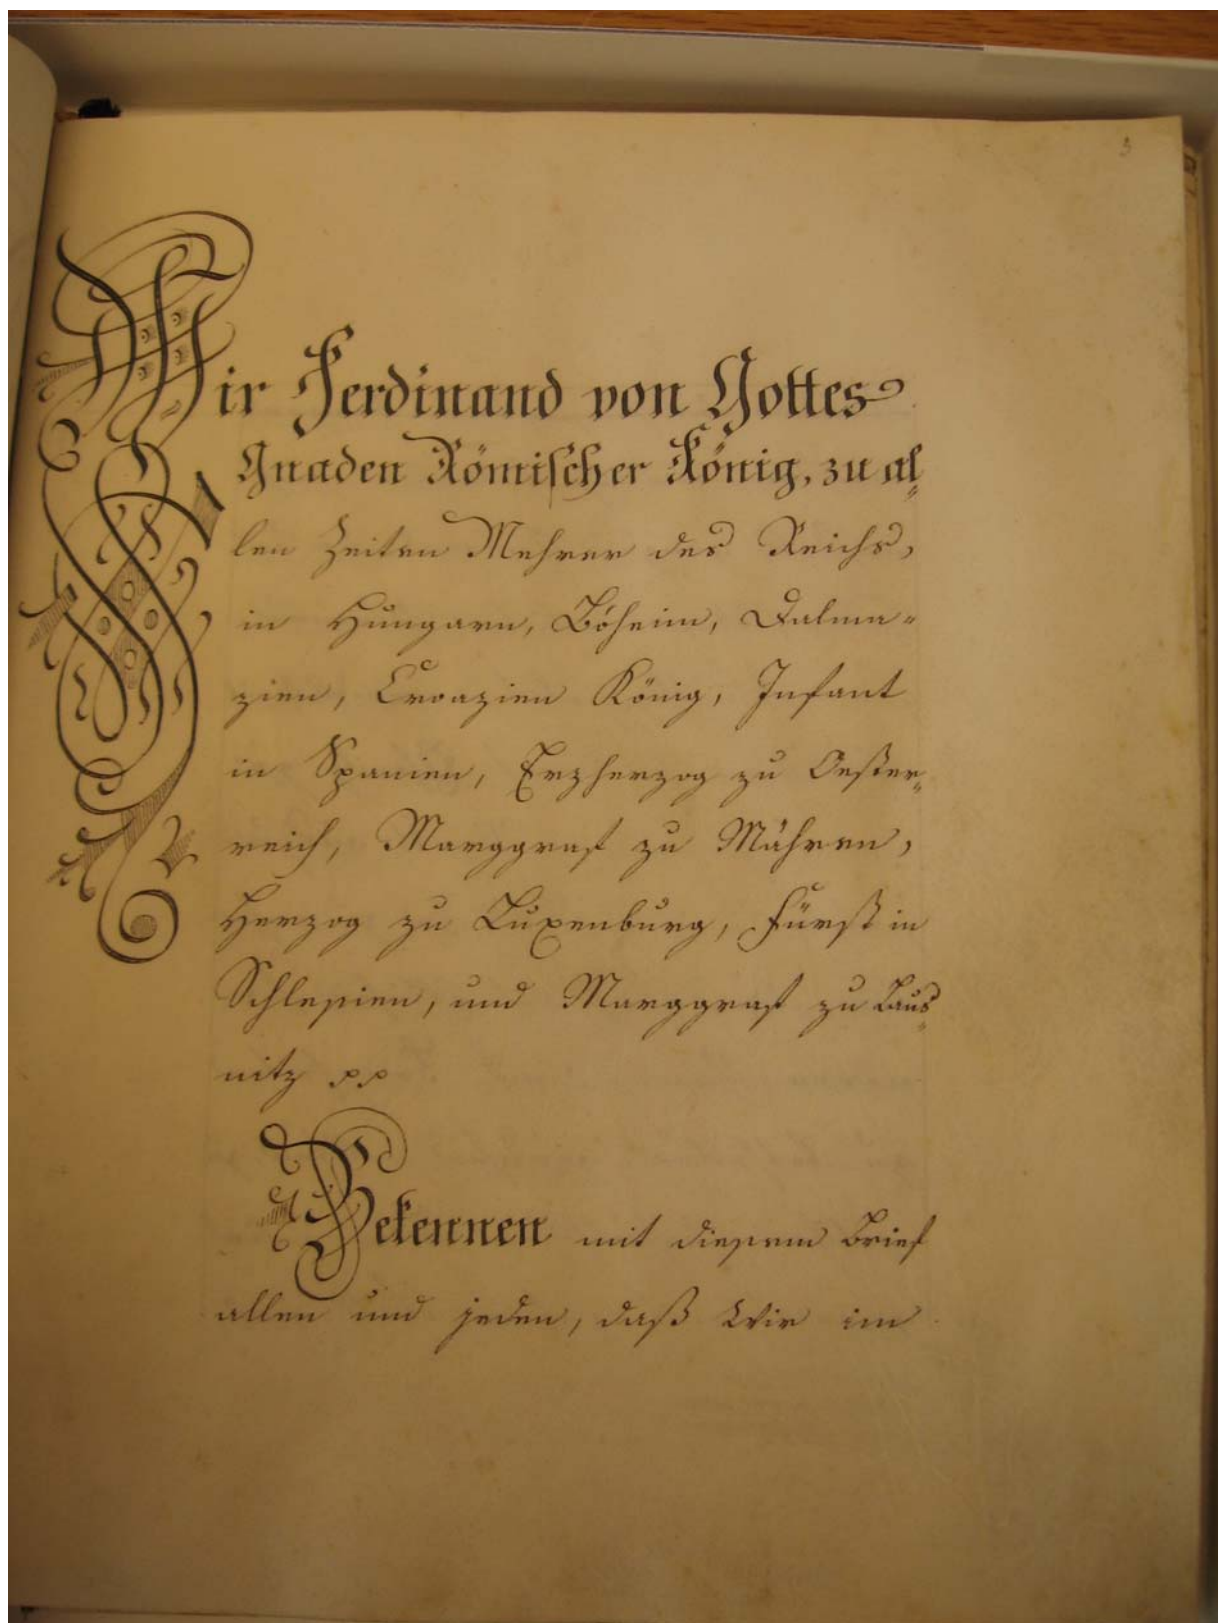 3
Wir Ferdinand von Gottes
Gnaden Römischer König, zu al„
len Zeiten Mehrer des Reichs,
in Hungarn, Böheim, Dalma„
zien, Croazien König, Infant
in Spanien, Erzherzog zu Oester„
reich, Marggraf zu Mähren,
Herzog zu Luxenburg, Fürst in
Schlesien, und Marggraf zu Laus„
nitz pp
Bekennen mit diesem Brief
allen und jeden, daß Wir im